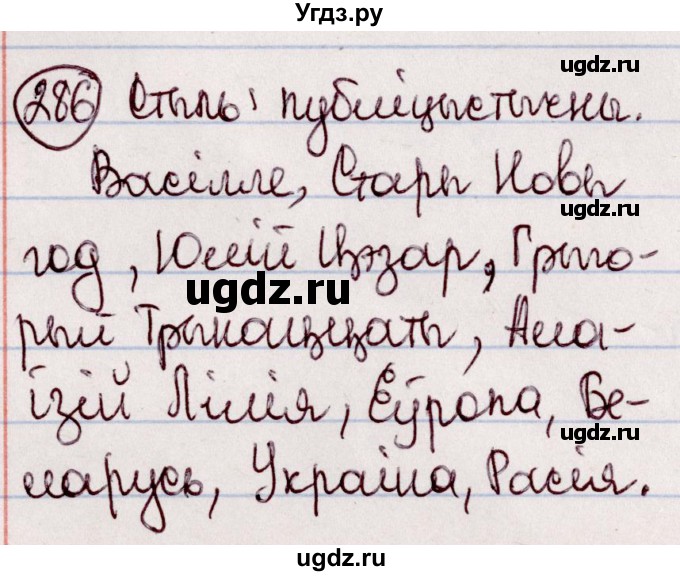 Угдз.ру
ugdz.ru
286 Стыль: публіцыстычны.
Васілле, Стары Новы
ugdz.ru
год, Юлій Цэзар, Грыго-
ugdz.ru
рый Трынаццаты, Ала-
ізій Лілія, Еўропа, Бе-
ugdz.ru
ларусь, Украіна, Расія.
ugdz.ru